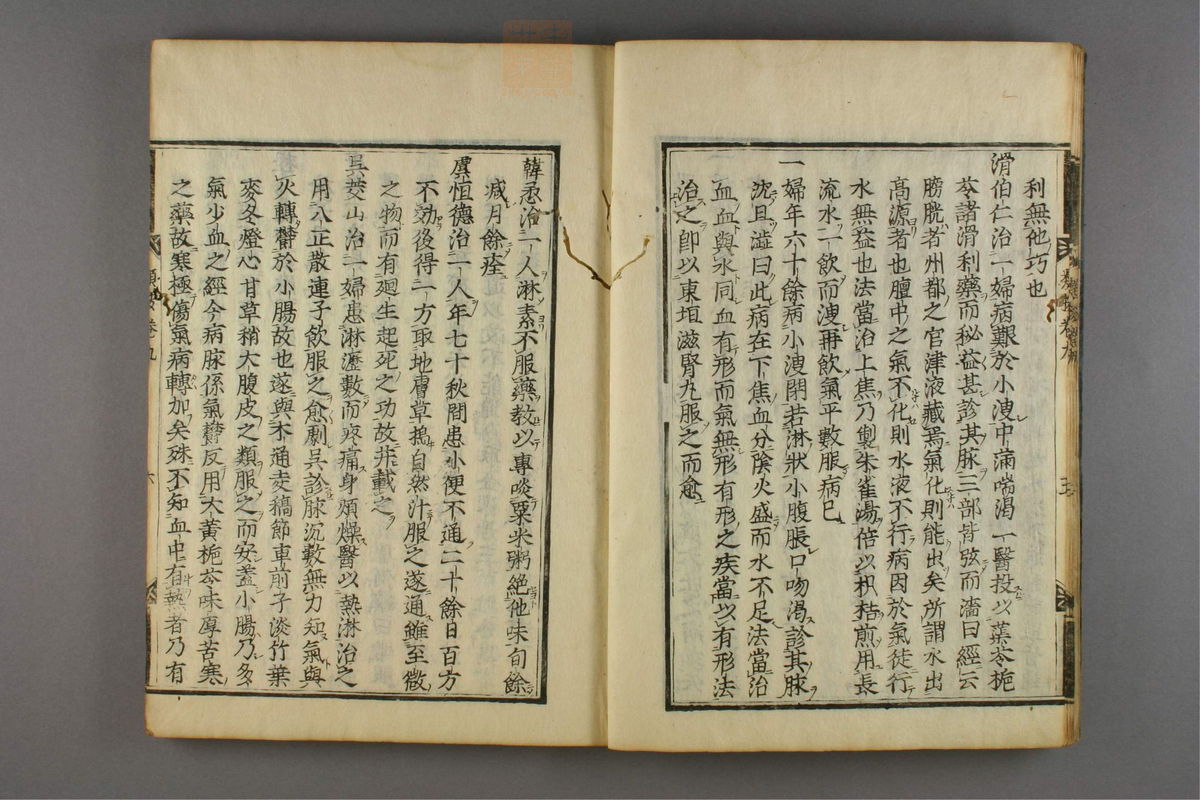 利無他巧也
滑伯仁治一婦病艱於小溲中滿喘渴一醫投以葉苓梔
苓諸滑利藥而秘益甚診其脉三部皆弦而濇曰經云
膀胱者州都之官津液藏焉氣化則能出矣所謂水出
高源者也膻中之氣不化則水液不行病因於氣徒行
水無益也法當治上焦乃製朱雀湯倍以枳桔煎用長
流水一飲而溲再飲氣平數服病已
一婦年六十餘病小溲閉若淋狀小腹脹口吻渴診其脉
沈且澁曰此病在下焦血分陰火盛而水不足法當治
血血與水同血有形而氣無形有形之疾當以有形法
治之即以東垣滋腎丸服之而愈
韓㤚治一人淋素不服藥教以專啖粟米粥絕他味旬餘
減月餘痊
虞恒德治一人年七十秋間患小便不通二十餘日百方
不効後得一方取地膚草搗自然汁服之遂通雖至微
之物而有廻生起死之功故并載之
吳茭山治一婦患淋瀝數而疼痛身煩燥醫以熱淋治之
用八正散連子飲服之愈劇吳診脉沉數無力知氣與
火轉鬱於小腸故也遂與木通𦯧稿節車前子淡竹葉
麥冬燈心甘草稍大腹皮之類服之而安盖小腸乃多
氣少血之經今病脉係氣鬱反用大黃梔苓味厚苦寒
之藥故寒極傷氣病轉加矣殊不知血中有熱者乃有
卷九
五
六